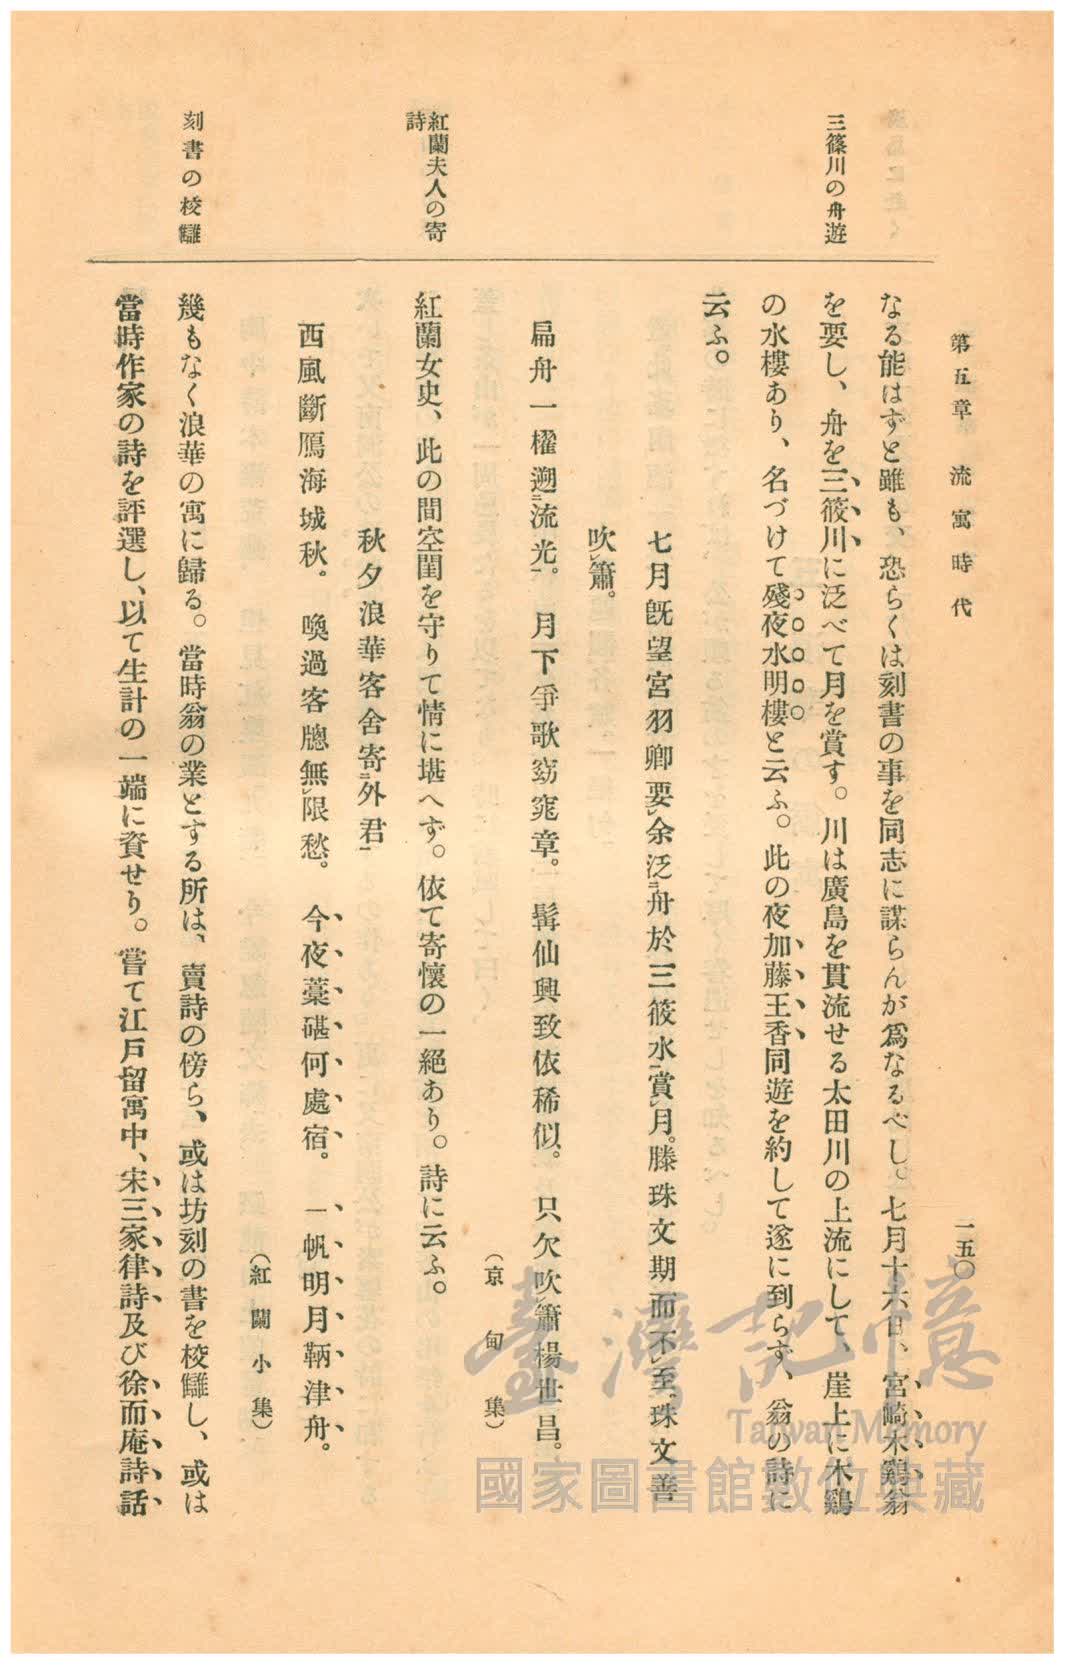 第五章 流寓時代
一五〇
三篠川の舟遊
紅蘭夫人の寄
詩
刻書の校讎
なる能はずと雖も、恐らくは刻書の事を同志に謀らんが爲なるべし。七月十六日、宮崎木鷄翁
を要し、舟を三篠川に泛べて月を賞す。川は廣島を貫流せる太田川の上流にして、崖上に木鷄
の水樓あり、名づけて殘夜水明樓と云ふ。此の夜加藤王香同遊を約して遂に到らず、翁の詩に
云ふ。
七月既望宮羽卿要レ余泛二舟於三筱水一賞レ月。滕珠文期而不レ至。珠文善
吹レ簫。
扁舟一櫂遡二流光一。月下爭歌窈窕章。髯仙興致依稀似。只欠吹レ簫楊世昌。
（京甸集）
紅蘭女史、此の間空閨を守りて情に堪へず。依て寄懷の一絕あり。詩に云ふ。
秋夕浪華客舍寄二外君一
西風斷鴈海城秋。喚過客牕無レ限愁。今夜藁碪何處宿。一帆明月鞆津舟。
（紅蘭小集）
幾もなく浪華の寓に歸る。當時翁の業とする所は、賣詩の傍ら、或は坊刻の書を校讎し、或は
當時作家の詩を評選し、以て生計の一端に資せり。嘗て江戶留寓中、宋三家律詩及び徐而庵詩話
臺灣記憶
Taiwan Memory
國家圖書館數位典藏